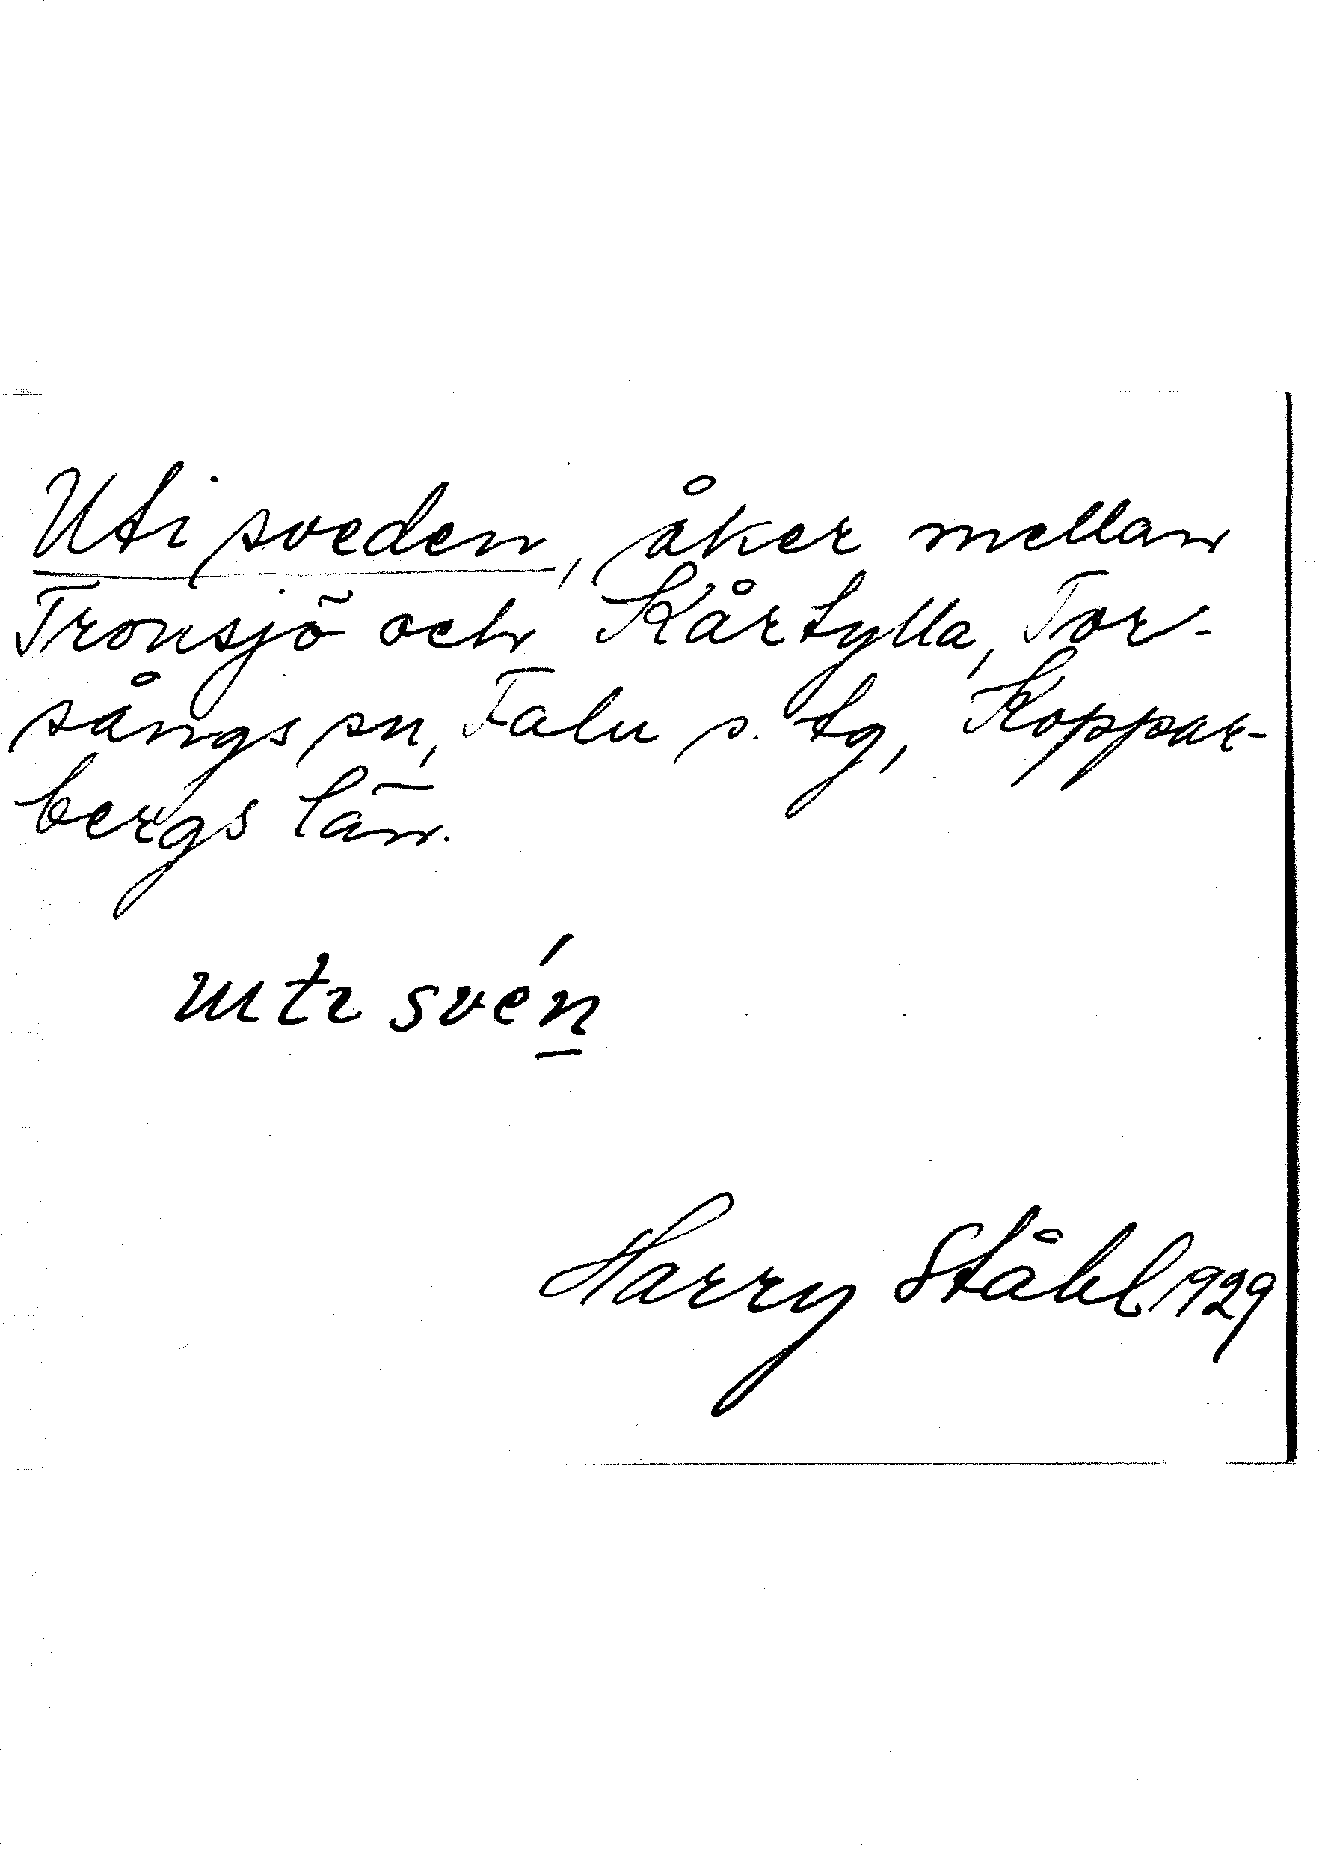 Uti sveden, åker mellan
Tronsjö och Kårtylla, Tor-
sångs sn, Falu s. tg, Koppar-
bergs län.
utı svén
Harry Ståhl 1929